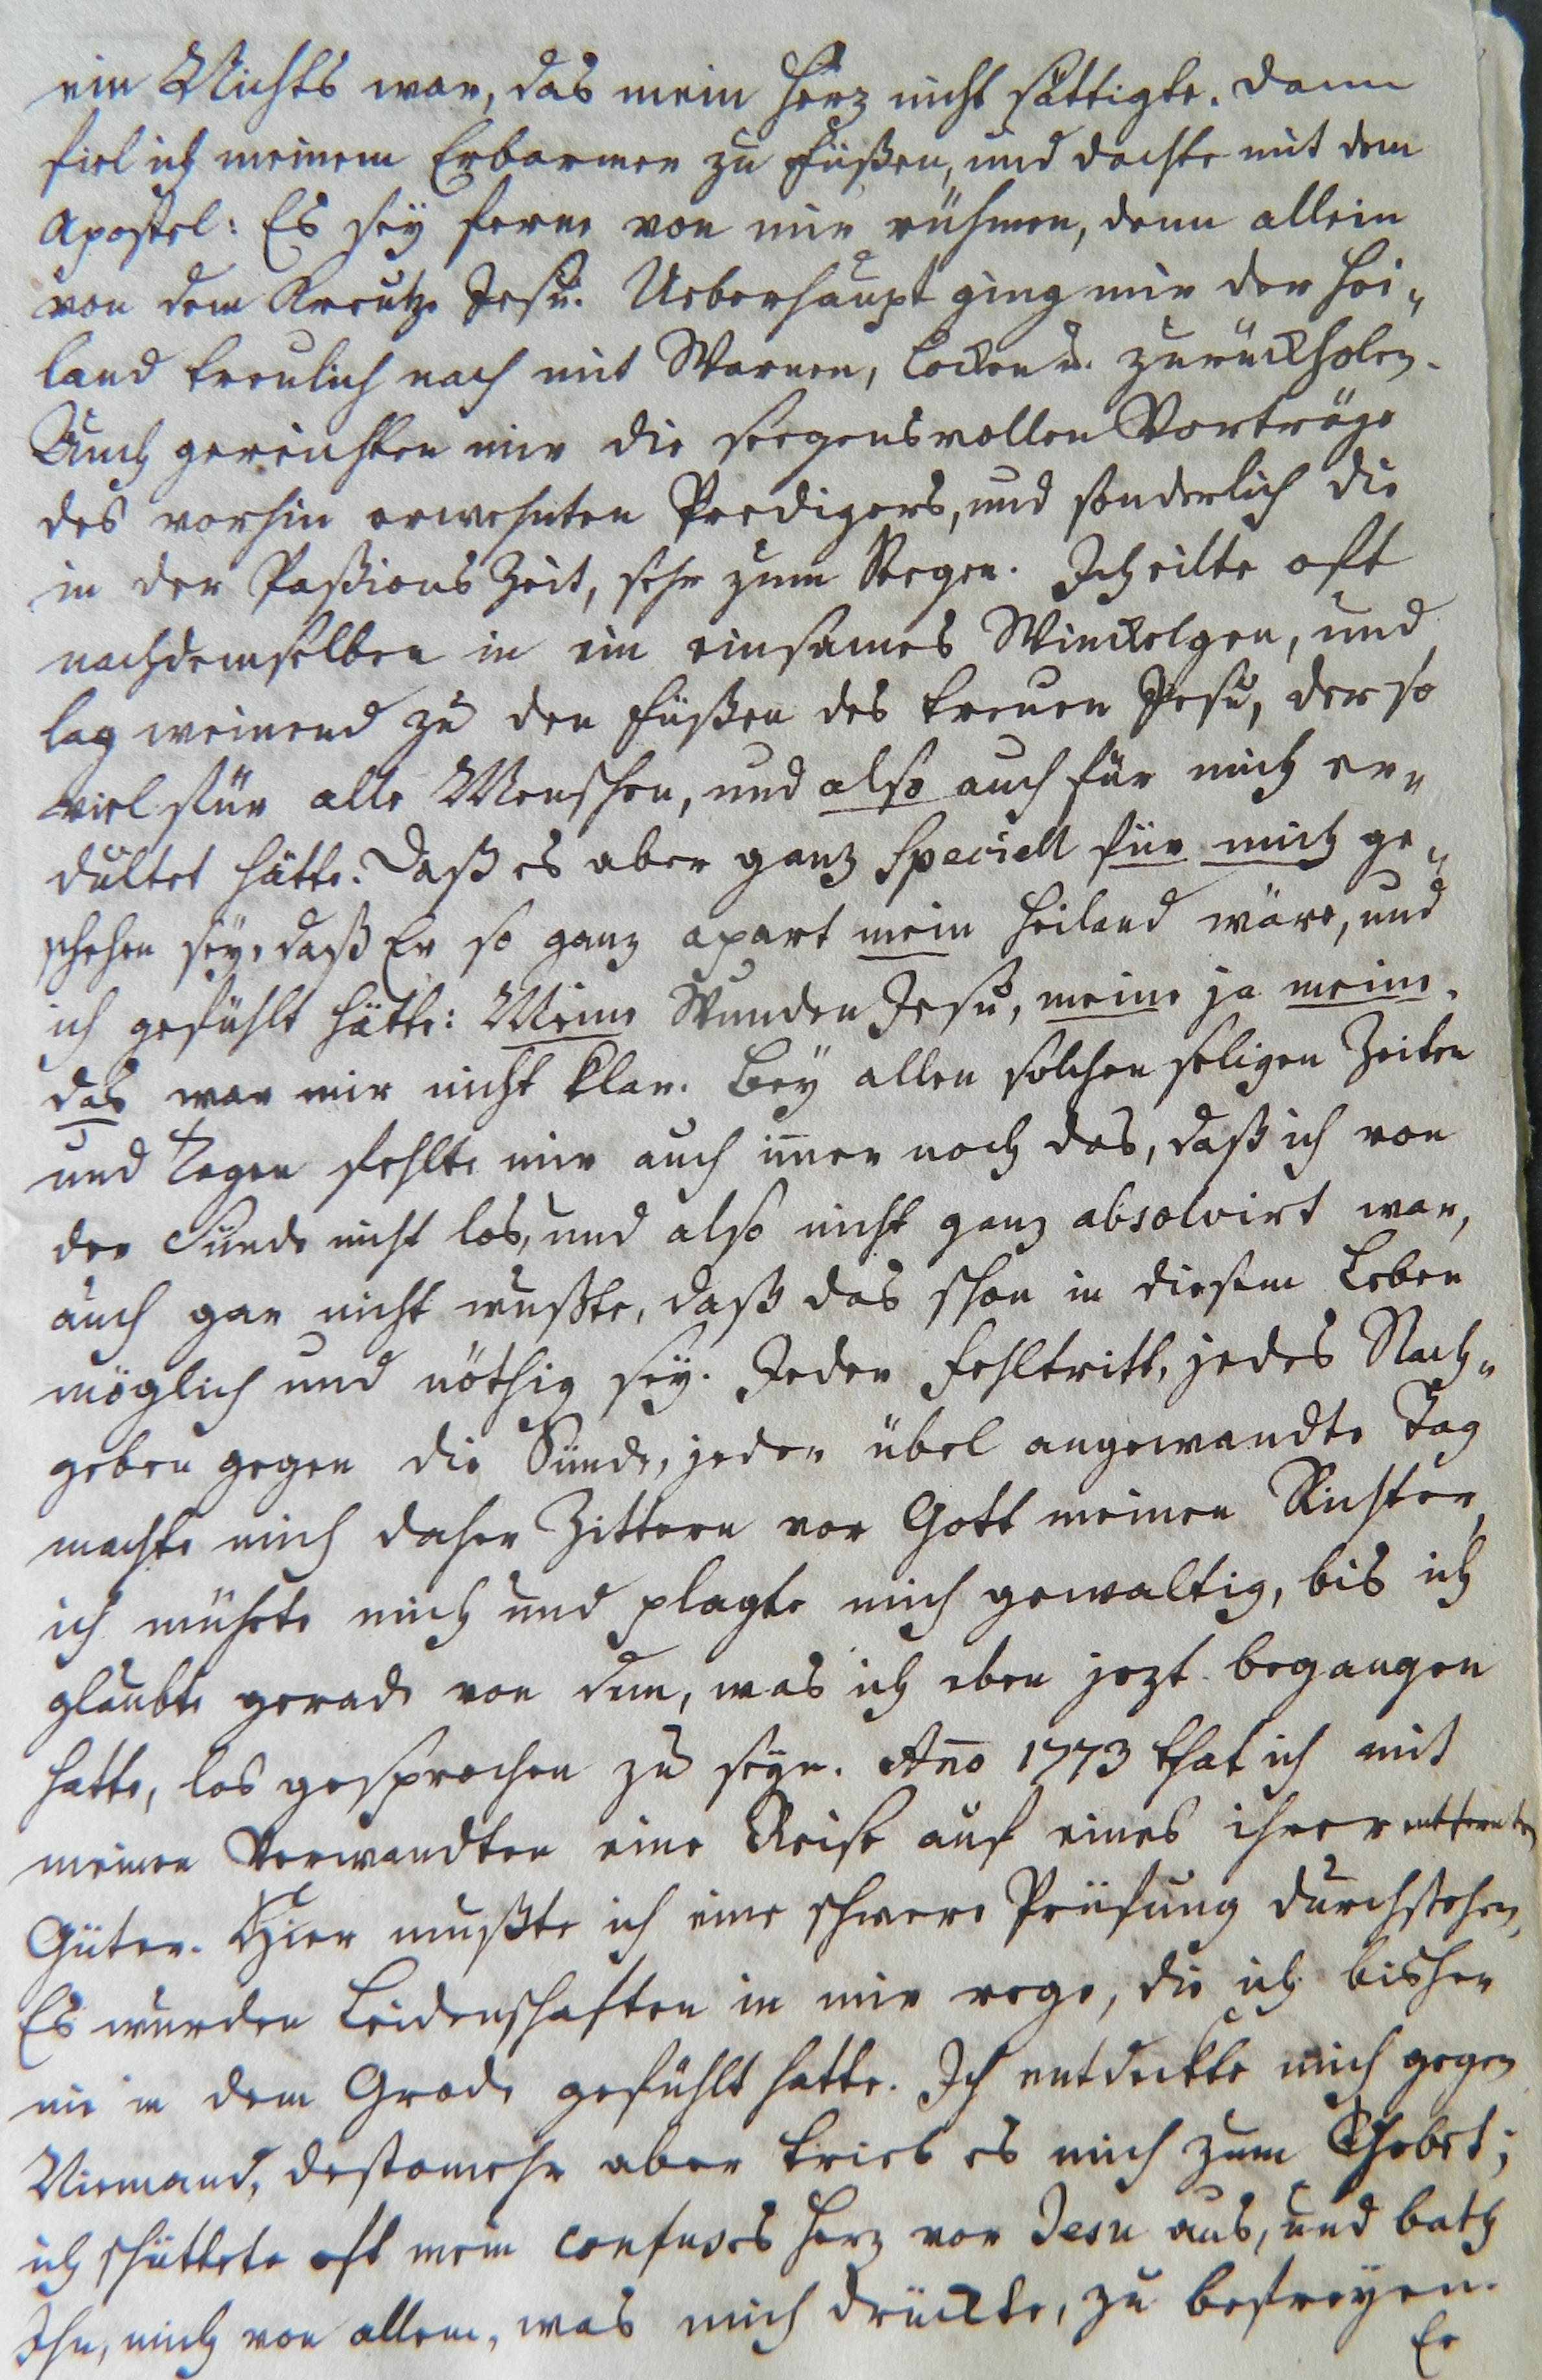 ein Nichts war, das mein Herz nicht sättigte. Dann
fiel ich meinem Erbarmer zu Füßen, und dachte mit dem
Apostel: Es sey ferne von mir rühmen, denn allein
von dem Kreutze Jesu. Ueberhaupt ging mir der Hei-
land treulich nach mit Warnen, Locken u. zurückholen.
Auch gereichten mir die seegensvollen Vorträge
des vorhin erwehnten Predigers, und sonderlich die
in der Paßions Zeit, sehr zum Seegen. Ich eilte oft
nachdemselben in ein einsames Winckelgen, und
lag weinend zu den Füßen des treuen Jesu, der so
viel für alle Menschen, und also auch für mich er-
dultet hätte. Daß es aber ganz speciell für mich ge-
schehen sey, daß Er so ganz apart mein Heiland wäre, und
ich gefühlt hätte: Meine Wunden Jesu, meine ja meine.
das war mir nicht klar. Bey allen solchen seligen Zeiten
und Tagen fehlte mir auch im̄er noch das, daß ich von
der Sünde nicht los, und also nicht ganz absolvirt war,
auch gar nicht wußte, daß das schon in diesem Leben
möglich und nöthig sey. Jeder Fehltritt, jedes Nach-
geben gegen die Sünde, jeder übel angewandte Tag
machte mich daher Zittern vor Gott meinen Richter,
ich mühete mich und plagte mich gewaltig, bis ich
glaubte gerade von dem, was ich eben jezt begangen
hatte, los gesprochen zu seyn. An̄o 1773 that ich mit
meinen Verwandten eine Reise auf eines ihrer entfernten
Güter. Hier mußte ich eine schwere Prüfung durchstehen,
Es wurden Leidenschaften in mir rege, die ich bisher
nie in dem Grade gefühlt hatte. Ich entdeckte mich gegen
Niemand, destomehr aber trieb es mich zum Gebet;
ich schüttete oft mein confuses Herz vor Jesu aus, und bath
Ihn, mich von allem, was mich drückte, zu befreyen.
Er